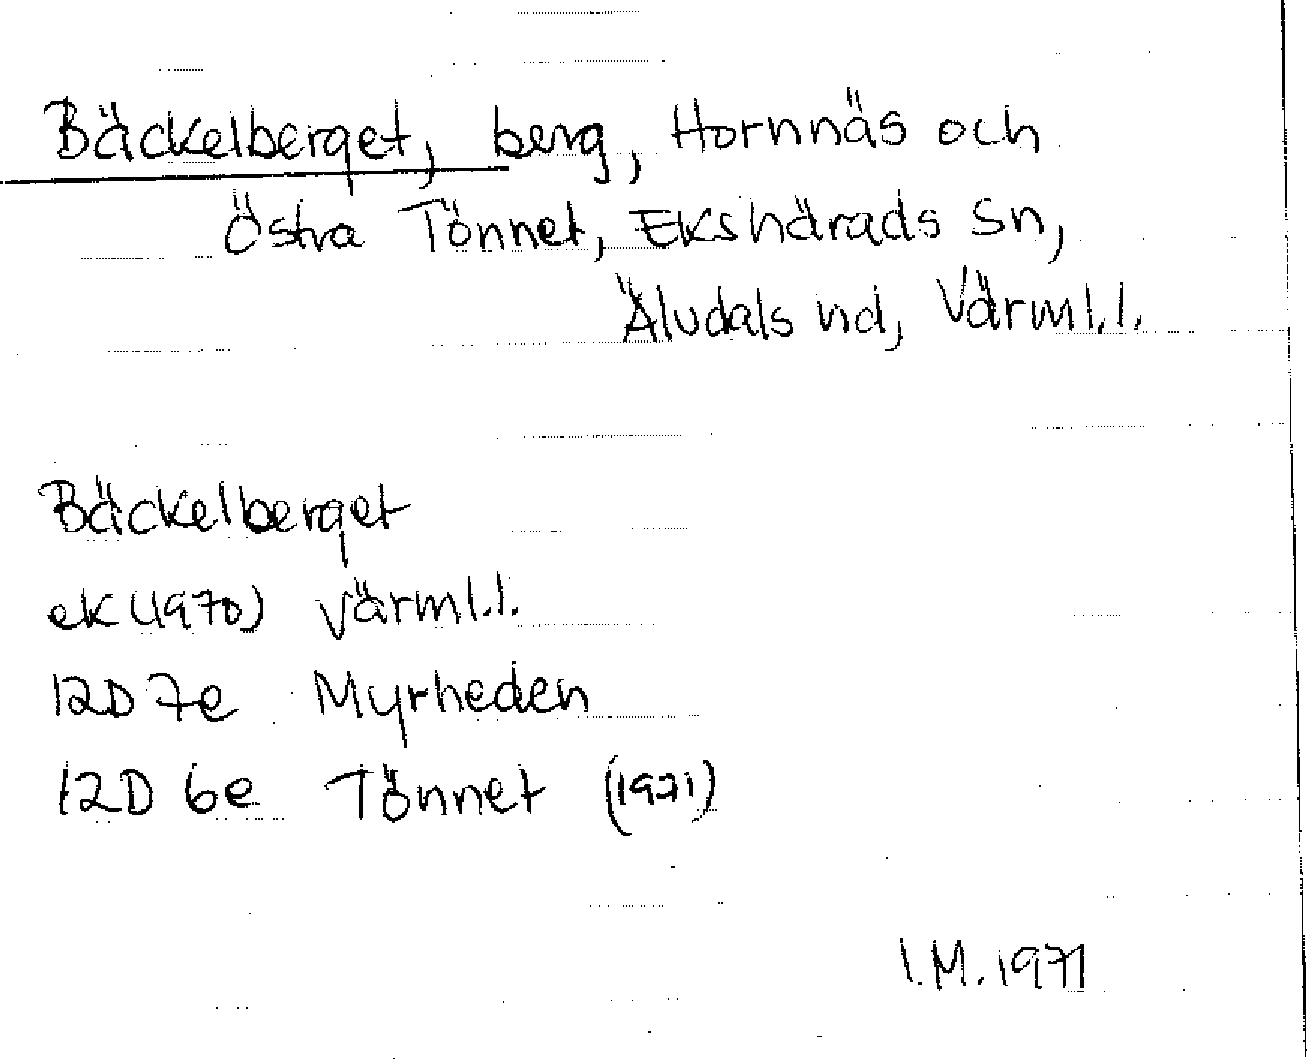 Bäckelberget, berg, Hornnäs och
Östra Tönnet, Ekshärads sn,
Älvdals hd, Värml.l.
Bäckelberget
ek (1970) Värml.l.
12D 7e Myrheden
12D 6e Tönnet (1971)
I.M. 1971